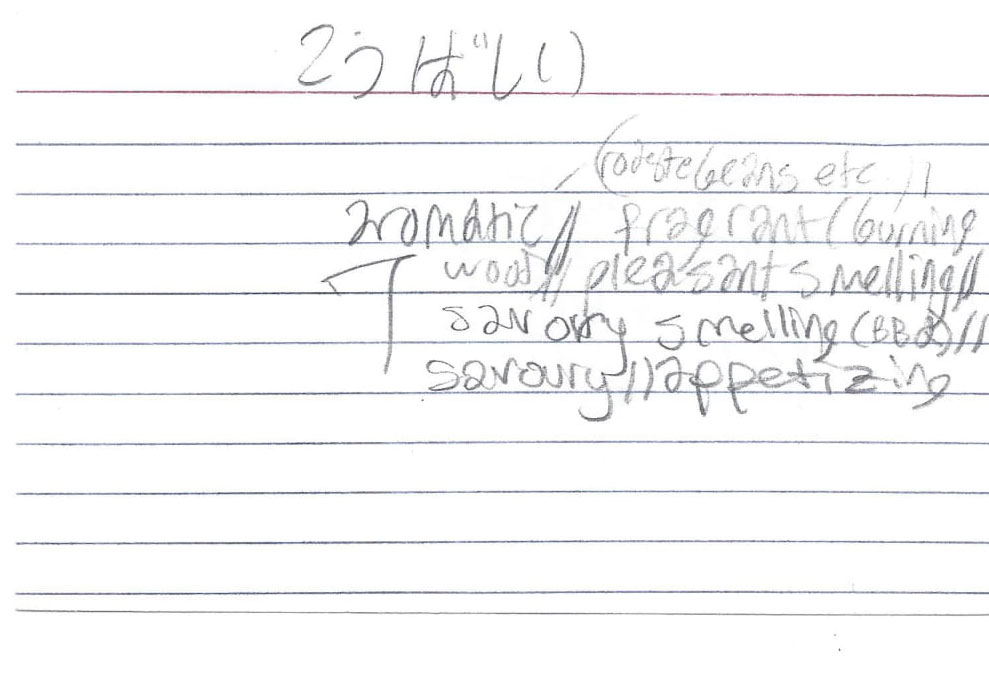 こうばしい
(roaste beans etc.)//
aromatic// fragrant (burning
wood// pleasant smelling//
savory smelling (BBQ)//
savoury// appetizing